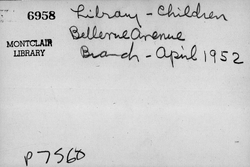 6958
Library - Children
MONTCLAIR
LIBRARY
Bellevue Avenue
Branch - April 1952
P7560